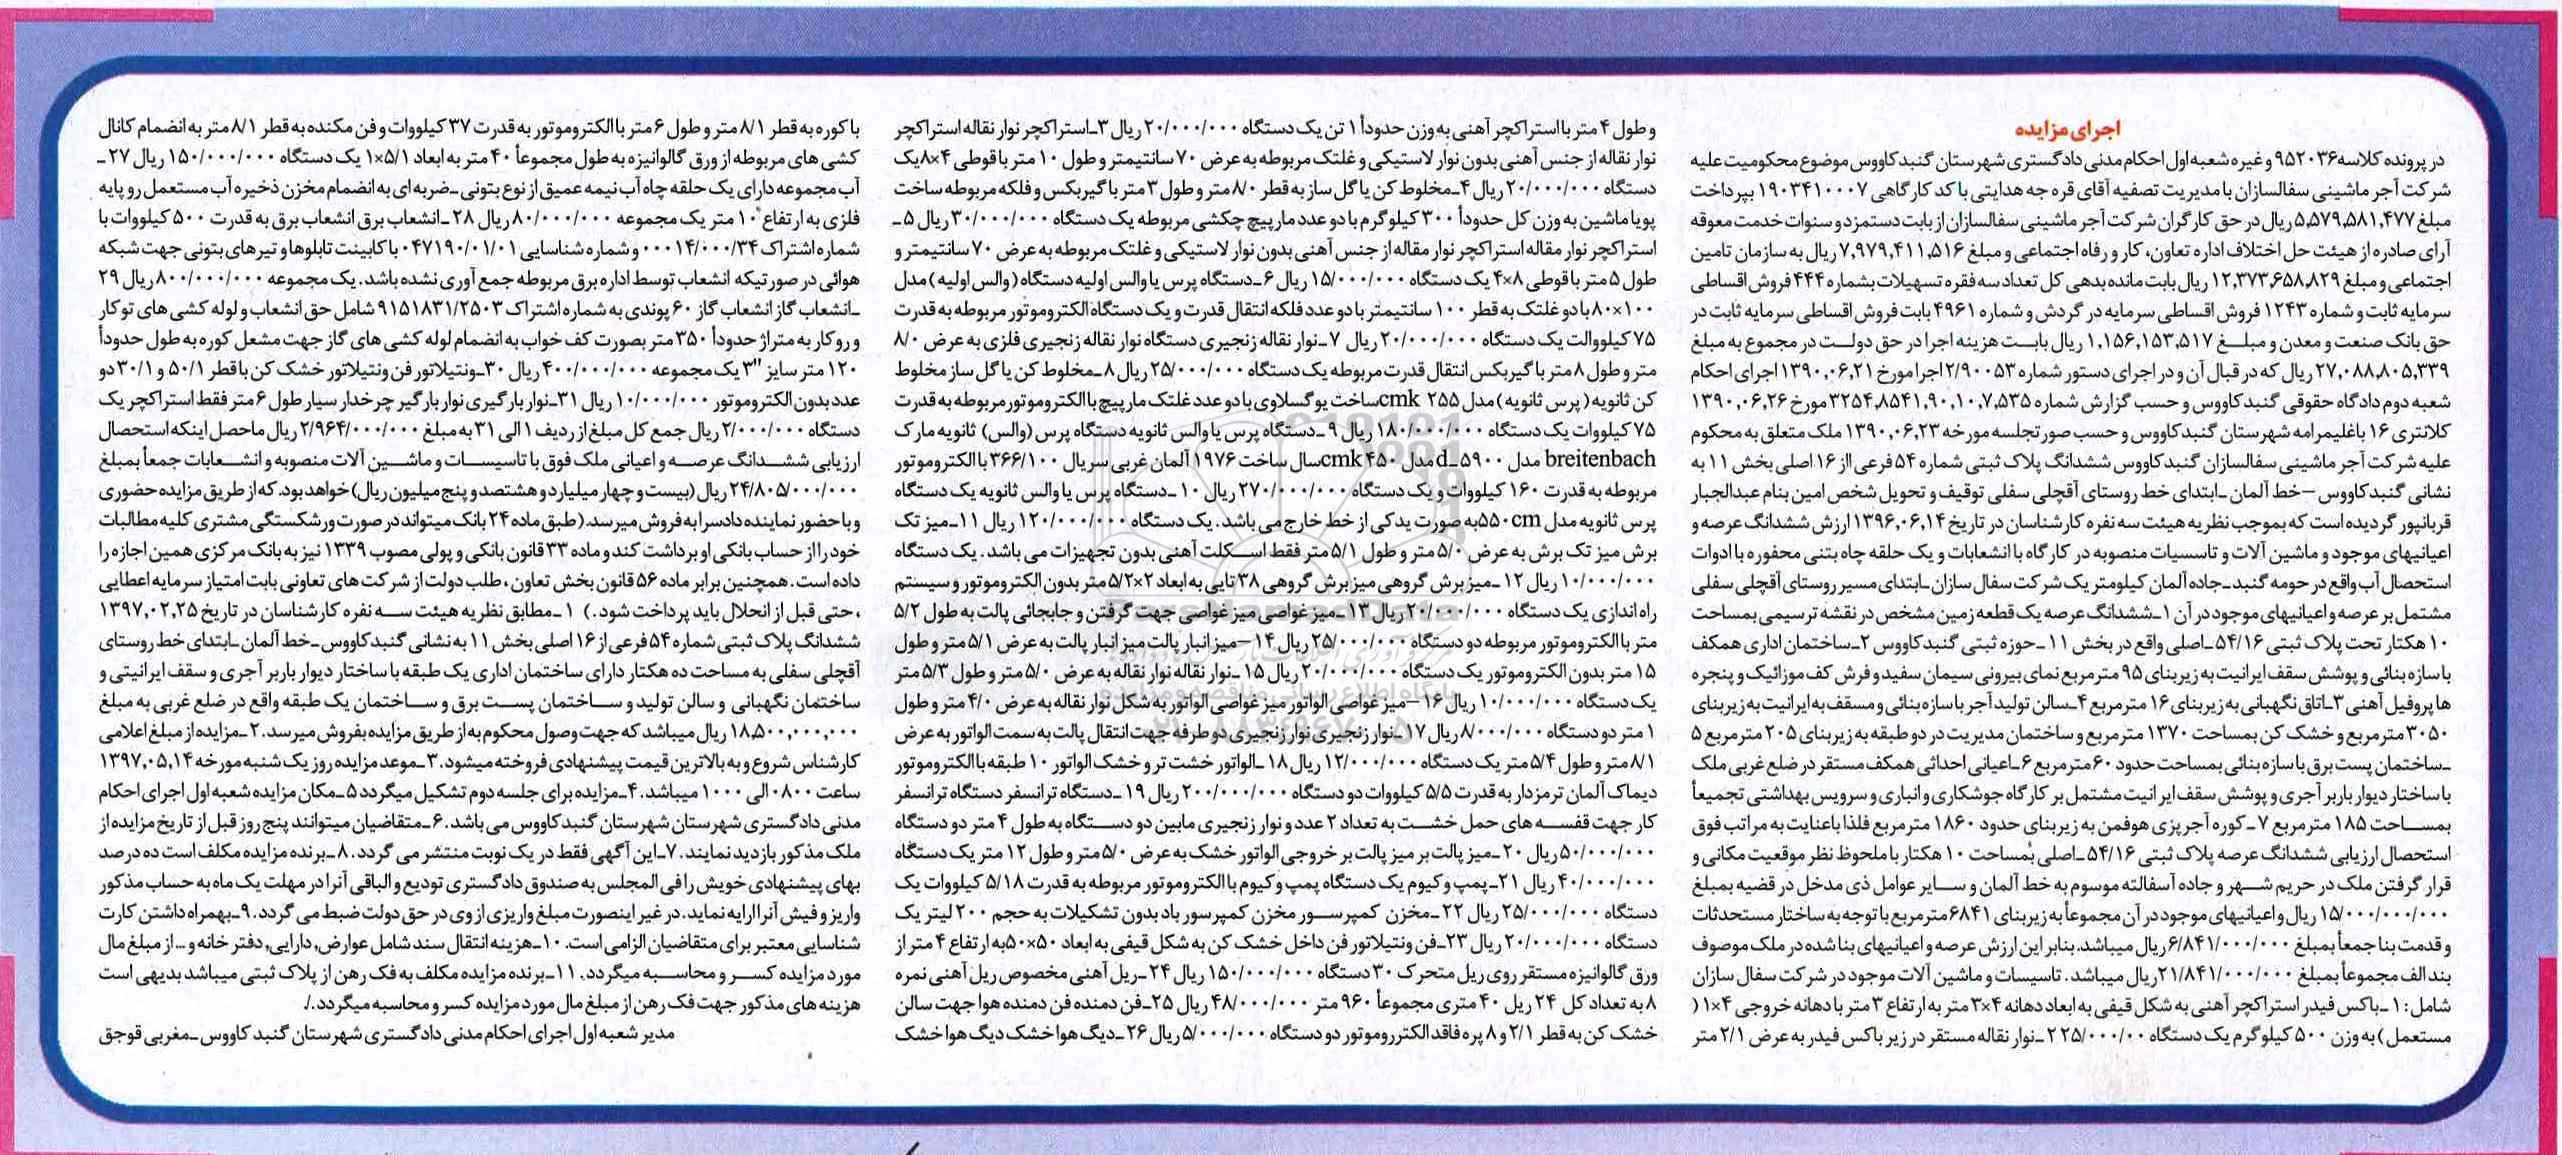 اجرای مزایده
در پرونده کلاسه ۹۵۲۰۳۶ و غیره شعبه اول احکام مدنی دادگستری شهرستان گنبدکاووس موضوع محکومیت علیه
شرکت آجر ماشینی سفالسازان با مدیریت تصفیه آقای قره جه هدایتی با کد کارگاهی ۱۹۰۳۴۱۰۰۰۷ بپرداخت
مبلغ ۵,۵۷۹,۵۸۱,۴۷۷ ریال در حق کارگران شرکت آجر ماشینی سفالسازان از بابت دستمزد و سنوات خدمت معوقه
آرای صادره از هیئت حل اختلاف اداره تعاون، کار و رفاه اجتماعی و مبلغ ۷,۹۷۹,۴۱۱,۵۱۶ ریال به سازمان تامین
اجتماعی و مبلغ ۱۲,۳۷۳,۶۵۸,۸۲۹ ریال بابت مانده بدهی کل تعداد سه فقره تسهیلات بشماره ۴۴۴ فروش اقساطی
سرمایه ثابت و شماره ۱۲۴۳ فروش اقساطی سرمایه در گردش و شماره ۴۹۶۱ بابت فروش اقساطی سرمایه ثابت در
حق بانک صنعت و معدن و مبلغ ۱,۱۵۶,۱۵۳,۵۱۷ ریال بابت هزینه اجرا در حق دولت در مجموع به مبلغ
۲۷,۰۸۸,۸۰۵,۳۳۹ ریال که در قبال آن و در اجرای دستور شماره ۲/۹۰۰۵۳ اجرا مورخ ۱۳۹۰,۰۶,۲۱ اجرای احکام
شعبه دوم دادگاه حقوقی گنبدکاووس و حسب گزارش شماره ۳۲۵۴,۸۵۴۱,۹۰,۱۰,۷,۵۳۵ مورخ ۱۳۹۰,۰۶,۲۶
کلانتری ۱۶ باغلیمرامه شهرستان گنبدکاووس و حسب صورتجلسه مورخه ۱۳۹۰,۰۶,۲۳ ملک متعلق به محکوم
علیه شرکت آجر ماشینی سفالسازان گنبدکاووس ششدانگ پلاک ثبتی شماره ۵۴ فرعی از ۱۶ اصلی بخش ۱۱ به
نشانی گنبدکاووس – خط آلمان – ابتدای خط روستای آقچلی سفلی توقیف و تحویل شخص امین بنام عبدالجبار
قربانپور گردیده است که بموجب نظریه هیئت سه نفره کارشناسان در تاریخ ۱۳۹۶,۰۶,۱۴ ارزش ششدانگ عرصه و
اعیانیهای موجود و ماشین آلات و تاسسیات منصوبه در کارگاه با انشعابات و یک حلقه چاه بتنی محفوره با ادوات
استحصال آب واقع در حومه گنبد – جاده آلمان کیلومتر یک شرکت سفال سازان – ابتدای مسیر روستای آقچلی سفلی
مشتمل بر عرصه و اعیانیهای موجود در آن ۱ – ششدانگ عرصه یک قطعه زمین مشخص در نقشه ترسیمی بمساحت
۱۰ هکتار تحت پلاک ثبتی ۵۴/۱۶ – اصلی واقع در بخش ۱۱ – حوزه ثبتی گنبدکاووس ۲ – ساختمان اداری همکف
با سازه بنائی و پوشش سقف ایرانیت به زیربنای ۹۵ مترمربع نمای بیرونی سیمان سفید و فرش کف موزائیک و پنجره
ها پروفیل آهنی ۳ – اتاق نگهبانی به زیربنای ۱۶ مترمربع ۴ – سالن تولید آجر با سازه بنائی و مسقف به ایرانیت به زیربنای
۳۰۵۰ مترمربع و خشک کن بمساحت ۱۳۷۰ مترمربع و ساختمان مدیریت در دو طبقه به زیربنای ۲۰۵ مترمربع ۵
– ساختمان پست برق با سازه بنائی بمساحت حدود ۶۰ مترمربع ۶ – اعیانی احداثی همکف مستقر در ضلع غربی ملک
با ساختار دیوار باربر آجری و پوشش سقف ایرانیت مشتمل بر کارگاه جوشکاری و انباری و سرویس بهداشتی تجمیعاً
بمساحت ۱۸۵ مترمربع ۷ – کوره آجرپزی هوفمن به زیربنای حدود ۱۸۶۰ مترمربع فلذا باعنایت به مراتب فوق
استحصال ارزیابی ششدانگ عرصه پلاک ثبتی ۵۴/۱۶ – اصلی بمساحت ۱۰ هکتار با ملحوظ نظر موقعیت مکانی و
قرار گرفتن ملک در حریم شهر و جاده آسفالته موسوم به خط آلمان و سایر عوامل ذی مدخل در قضیه بمبلغ
۱۵/۰۰۰/۰۰۰/۰۰۰ ریال و اعیانیهای موجود در آن مجموعاً به زیربنای ۶۸۴۱ مترمربع با توجه به ساختار مستحدثات
و قدمت بنا جمعاً بمبلغ ۶/۸۴۱/۰۰۰/۰۰۰ ریال میباشد. بنابر این ارزش عرصه و اعیانیهای بنا شده در ملک موصوف
بند الف مجموعاً بمبلغ ۲۱/۸۴۱/۰۰۰/۰۰۰ ریال میباشد. تاسیسات و ماشین آلات موجود در شرکت سفال سازان
شامل: ۱ – باکس فیدر استراکچر آهنی به شکل قیفی به ابعاد دهانه ۴×۳ متر به ارتفاع ۳ متر با دهانه خروجی ۴×۱ (
مستعمل) به وزن ۵۰۰ کیلوگرم یک دستگاه ۲۲۵/۰۰۰/۰۰ – نوار نقاله مستقر در زیر باکس فیدر به عرض ۲/۱ متر
و طول ۴ متر با استراکچر آهنی به وزن حدوداً ۱ تن یک دستگاه ۲۰/۰۰۰/۰۰۰ ریال ۳ – استراکچر نوار نقاله استراکچر
نوار نقاله از جنس آهنی بدون نوار لاستیکی و غلتک مربوطه به عرض ۷۰ سانتیمتر و طول ۱۰ متر با قوطی ۴×۸ یک
دستگاه ۲۰/۰۰۰/۰۰۰ ریال ۴ – مخلوط کن یا گل ساز به قطر ۸/۰ متر و طول ۳ متر با گیربکس و فلکه مربوطه ساخت
پویا ماشین به وزن کل حدوداً ۳۰۰ کیلوگرم با دو عدد مارپیچ چکشی مربوطه یک دستگاه ۳۰/۰۰۰/۰۰۰ ریال ۵ –
استراکچر نوار مقاله استراکچر نوار مقاله از جنس آهنی بدون نوار لاستیکی و غلتک مربوطه به عرض ۷۰ سانتیمتر و
طول ۵ متر با قوطی ۸×۴ یک دستگاه ۱۵/۰۰۰/۰۰۰ ریال ۶ – دستگاه پرس یا والس اولیه دستگاه (والس اولیه) مدل
۸۰×۱۰۰ با دو غلتک به قطر ۱۰۰ سانتیمتر با دو عدد فلکه انتقال قدرت و یک دستگاه الکتروموتور مربوطه به قدرت
۷۵ کیلووالت یک دستگاه ۲۰/۰۰۰/۰۰۰ ریال ۷ – نوار نقاله زنجیری دستگاه نوار نقاله زنجیری فلزی به عرض ۸/۰
متر و طول ۸ متر با گیربکس انتقال قدرت مربوطه یک دستگاه ۲۵/۰۰۰/۰۰۰ ریال ۸ – مخلوط کن یا گل ساز مخلوط
کن ثانویه (پرس ثانویه) مدل ۲۵۵ cmk ساخت یوگسلاوی با دو عدد غلتک مارپیچ با الکتروموتور مربوطه به قدرت
۷۵ کیلووات یک دستگاه ۱۸۰/۰۰۰/۰۰۰ ریال ۹ – دستگاه پرس یا والس ثانویه دستگاه پرس (والس) ثانویه مارک
breitenbach مدل ۵۹۰۰ – d مدل ۴۵۰ cmk سال ساخت ۱۹۷۶ آلمان غربی سریال ۳۶۶/۱۰۰ با الکتروموتور
مربوطه به قدرت ۱۶۰ کیلووات و یک دستگاه ۲۷۰/۰۰۰/۰۰۰ ریال ۱۰ – دستگاه پرس یا والس ثانویه یک دستگاه
پرس ثانویه مدل ۵۵۰cm به صورت یدکی از خط خارج می باشد. یک دستگاه ۱۲۰/۰۰۰/۰۰۰ ریال ۱۱ – میز تک
برش میز تک برش به عرض ۵/۰ متر و طول ۵/۱ متر فقط اسکلت آهنی بدون تجهیزات می باشد. یک دستگاه
۱۰/۰۰۰/۰۰۰ ریال ۱۲ – میز برش گروهی میز برش گروهی ۳۸ تایی به ابعاد ۲×۵/۲ متر بدون الکتروموتور و سیستم
راه اندازی یک دستگاه ۲۰/۰۰۰/۰۰۰ ریال ۱۳ – میز غواصی میز غواصی جهت گرفتن و جابجائی پالت به طول ۵/۲
متر با الکتروموتور مربوطه دو دستگاه ۲۵/۰۰۰/۰۰۰ ریال ۱۴ – میز انبار پالت میز انبار پالت به عرض ۵/۱ متر و طول
۱۵ متر بدون الکتروموتور یک دستگاه ۲۰/۰۰۰/۰۰۰ ریال ۱۵ – نوار نقاله نوار نقاله به عرض ۵/۰ متر و طول ۵/۳ متر
یک دستگاه ۱۰/۰۰۰/۰۰۰ ریال ۱۶ – میز غواصی الواتور میز غواصی الواتور به شکل نوار نقاله به عرض ۴/۰ متر و طول
۱ متر دو دستگاه ۸/۰۰۰/۰۰۰ ریال ۱۷ – نوار زنجیری نوار زنجیری دو طرفه جهت انتقال پالت به سمت الواتور به عرض
۸/۱ متر و طول ۵/۴ متر یک دستگاه ۱۲/۰۰۰/۰۰۰ ریال ۱۸ – الواتور خشت تر و خشک الواتور ۱۰ طبقه با الکتروموتور
دیماک آلمان ترمزدار به قدرت ۵/۵ کیلووات دو دستگاه ۲۰۰/۰۰۰/۰۰۰ ریال ۱۹ – دستگاه ترانسفر دستگاه ترانسفر
کار جهت قفسه های حمل خشت به تعداد ۲ عدد و نوار زنجیری مابین دو دستگاه به طول ۴ متر دو دستگاه
۵۰/۰۰۰/۰۰۰ ریال ۲۰ – میز پالت بر میز پالت بر خروجی الواتور خشک به عرض ۵/۰ متر و طول ۱۲ متر یک دستگاه
۴۰/۰۰۰/۰۰۰ ریال ۲۱ – پمپ وکیوم یک دستگاه پمپ وکیوم با الکتروموتور مربوطه به قدرت ۵/۱۸ کیلووات یک
دستگاه ۲۵/۰۰۰/۰۰۰ ریال ۲۲ – مخزن کمپرسور مخزن کمپرسور باد بدون تشکیلات به حجم ۲۰۰ لیتر یک
دستگاه ۲۰/۰۰۰/۰۰۰ ریال ۲۳ – فن ونتیلاتور فن داخل خشک کن به شکل قیفی به ابعاد ۵۰×۵۰ به ارتفاع ۴ متر از
ورق گالوانیزه مستقر روی ریل متحرک ۳۰ دستگاه ۱۵۰/۰۰۰/۰۰۰ ریال ۲۴ – ریل آهنی مخصوص ریل آهنی نمره
۸ به تعداد کل ۲۴ ریل ۴۰ متری مجموعاً ۹۶۰ متر ۴۸/۰۰۰/۰۰۰ ریال ۲۵ – فن دمنده فن دمنده هوا جهت سالن
خشک کن به قطر ۲/۱ و ۸ پره فاقد الکتروموتور دو دستگاه ۵/۰۰۰/۰۰۰ ریال ۲۶ – دیگ هوا خشک دیگ هوا خشک
با کوره به قطر ۸/۱ متر و طول ۶ متر با الکتروموتور به قدرت ۳۷ کیلووات و فن مکنده به قطر ۸/۱ متر به انضمام کانال
کشی های مربوطه از ورق گالوانیزه به طول مجموعاً ۴۰ متر به ابعاد ۵/۱×۱ یک دستگاه ۱۵۰/۰۰۰/۰۰۰ ریال ۲۷ –
آب مجموعه دارای یک حلقه چاه آب نیمه عمیق از نوع بتونی – ضربه ای به انضمام مخزن ذخیره آب مستعمل رو پایه
فلزی به ارتفاع ۱۰ متر یک مجموعه ۸۰/۰۰۰/۰۰۰ ریال ۲۸ – انشعاب برق انشعاب برق به قدرت ۵۰۰ کیلووات با
شماره اشتراک ۰۰۰۱۴/۰۰۰/۳۴ و شماره شناسایی ۰۴۷۱۹۰/۰۱/۰۱ با کابینت تابلوها و تیرهای بتونی جهت شبکه
هوائی در صورتیکه انشعاب توسط اداره برق مربوطه جمع آوری نشده باشد. یک مجموعه ۸۰۰/۰۰۰/۰۰۰ ریال ۲۹
– انشعاب گاز انشعاب گاز ۶۰ پوندی به شماره اشتراک ۹۱۵۱۸۳۱/۲۵۰۳ شامل حق انشعاب و لوله کشی های توکار
و روکار به متراژ حدوداً ۳۵۰ متر بصورت کف خواب به انضمام لوله کشی های گاز جهت مشعل کوره به طول حدوداً
۱۲۰ متر سایز "۳ یک مجموعه ۴۰۰/۰۰۰/۰۰۰ ریال ۳۰ – ونتیلاتور فن ونتیلاتور خشک کن با قطر ۵۰/۱ و ۳۰/۱ دو
عدد بدون الکتروموتور ۱۰/۰۰۰/۰۰۰ ریال ۳۱ – نوار بارگیری نوار بارگیر چرخدار سیار طول ۶ متر فقط استراکچر یک
دستگاه ۲/۰۰۰/۰۰۰ ریال جمع کل مبلغ از ردیف ۱ الی ۳۱ به مبلغ ۲/۹۶۴/۰۰۰/۰۰۰ ریال ماحصل اینکه استحصال
ارزیابی ششدانگ عرصه و اعیانی ملک فوق با تاسیسات و ماشین آلات منصوبه و انشعابات جمعاً بمبلغ
۲۴/۸۰۵/۰۰۰/۰۰۰ ریال (بیست و چهار میلیارد و هشتصد و پنج میلیون ریال) خواهد بود. که از طریق مزایده حضوری
و با حضور نماینده دادسرا به فروش میرسد. (طبق ماده ۲۴ بانک میتواند در صورت ورشکستگی مشتری کلیه مطالبات
خود را از حساب بانکی او برداشت کند و ماده ۳۳ قانون بانکی و پولی مصوب ۱۳۳۹ نیز به بانک مرکزی همین اجازه را
داده است. همچنین برابر ماده ۵۶ قانون بخش تعاون، طلب دولت از شرکت های تعاونی بابت امتیاز سرمایه اعطایی
، حتی قبل از انحلال باید پرداخت شود.) ۱ – مطابق نظریه هیئت سه نفره کارشناسان در تاریخ ۱۳۹۷,۰۲,۲۵
ششدانگ پلاک ثبتی شماره ۵۴ فرعی از ۱۶ اصلی بخش ۱۱ به نشانی گنبدکاووس – خط آلمان – ابتدای خط روستای
آقچلی سفلی به مساحت ده هکتار دارای ساختمان اداری یک طبقه با ساختار دیوار باربر آجری و سقف ایرانیتی و
ساختمان نگهبانی و سالن تولید و ساختمان پست برق و ساختمان یک طبقه واقع در ضلع غربی به مبلغ
۱۸,۵۰۰,۰۰۰,۰۰۰ ریال میباشد که جهت وصول محکوم به از طریق مزایده بفروش میرسد. ۲ – مزایده از مبلغ اعلامی
کارشناس شروع و به بالاترین قیمت پیشنهادی فروخته میشود. ۳ – موعد مزایده روز یک شنبه مورخه ۱۳۹۷,۰۵,۱۴
ساعت ۰۸۰۰ الی ۱۰۰۰ میباشد. ۴ – مزایده برای جلسه دوم تشکیل میگردد ۵ – مکان مزایده شعبه اول اجرای احکام
مدنی دادگستری شهرستان شهرستان گنبدکاووس می باشد. ۶ – متقاضیان میتوانند پنج روز قبل از تاریخ مزایده از
ملک مذکور بازدید نمایند. ۷ – این آگهی فقط در یک نوبت منتشر می گردد. ۸ – برنده مزایده مکلف است ده درصد
بهای پیشنهادی خویش را فی المجلس به صندوق دادگستری تودیع و الباقی آنرا در مهلت یک ماه به حساب مذکور
واریز و فیش آنرا ارایه نماید. در غیر اینصورت مبلغ واریزی از وی در حق دولت ضبط می گردد. ۹ – بهمراه داشتن کارت
شناسایی معتبر برای متقاضیان الزامی است. ۱۰ – هزینه انتقال سند شامل عوارض, دارایی, دفتر خانه و ... از مبلغ مال
مورد مزایده کسر و محاسبه میگردد. ۱۱ – برنده مزایده مکلف به فک رهن از پلاک ثبتی میباشد بدیهی است
هزینه های مذکور جهت فک رهن از مبلغ مال مورد مزایده کسر و محاسبه میگردد./.
مدیر شعبه اول اجرای احکام مدنی دادگستری شهرستان گنبد کاووس – مغربی قوجق